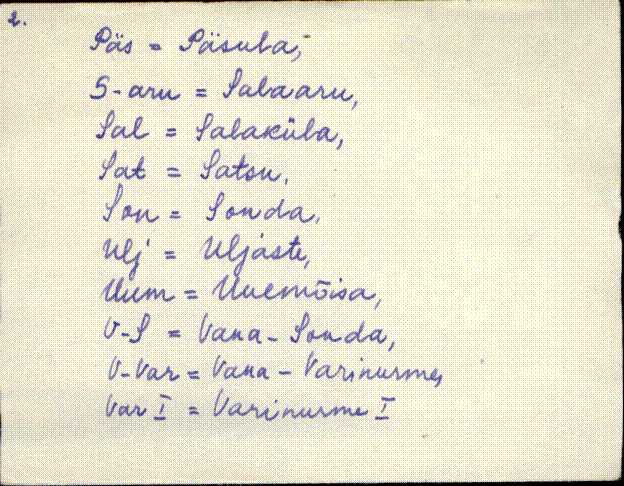 2.
Päs = Päsula,
S-aru = Salaaru,
Sal = Salaküla,
Sat = Satsu,
Son = Sonda,
Ulj = Uljaste,
Uum = Uuemõisa,
V-S = Vana-Sonda,
V-Var = Vana-Varinurme,
Var I = Varinurme I